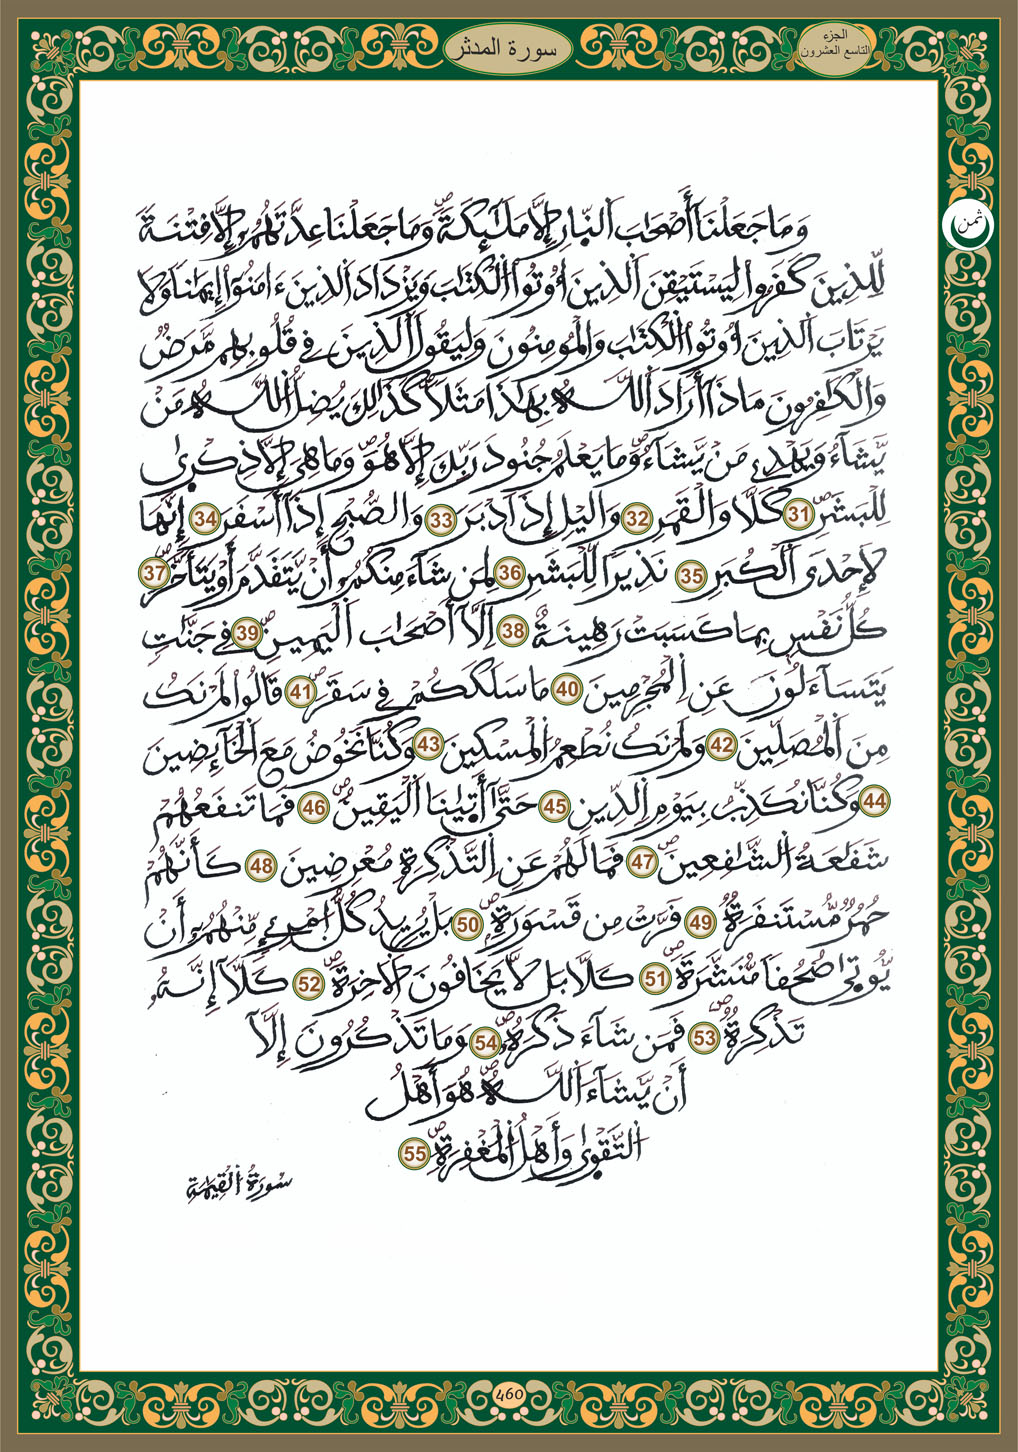 سورة المدثر
الجزء
التاسع العشرون
ثمن
وَمَا جَعَلْنَا أَصْحَٰبَ اَ۬لنّ۪ارِ إِلَّا مَلَٰٓئِكَةٗۖ وَمَا جَعَلْنَا عِدَّتَهُمُۥٓ إِلَّا فِتْنَةٗ
لِّلذِينَ كَفَرُواْ لِيَسْتَيْقِنَ اَ۬لذِينَ أُوتُواْ اُ۬لْكِتَٰبَ وَيَزْدَادَ اَ۬لذِينَ ءَامَنُوٓاْ إِيمَٰناٗ وَلَا
يَرْتَابَ اَ۬لذِينَ أُوتُواْ اُ۬لْكِتَٰبَ وَالْمُومِنُونَ وَلِيَقُولَ اَ۬لذِينَ فِے قُلُوبِهِم مَّرَضٞ
وَالْكَٰفِرُونَ مَاذَآ أَرَادَ اَ۬للَّهُ بِهَٰذَا مَثَلاٗۖ كَذَٰلِكَ يُضِلُّ اُ۬للَّهُ مَنْ
يَّشَآءُ وَيَهْدِے مَنْ يَّشَآءُۖ وَمَا يَعْلَمُ جُنُودَ رَبِّكَ إِلَّا هُوَۖ وَمَا هِيَ إِلَّا ذِكْر۪يٰ
لِلْبَشَرِۖ 31 كَلَّا وَالْقَمَرِ 32 وَاليْلِ إِذَ اَدْبَرَ 33 وَالصُّبْحِ إِذَآ أَسْفَرَ 34 إِنَّهَا
لَإِحْدَى اَ۬لْكُبَرِ 35 نَذِيراٗ لِّلْبَشَرِ 36 لِمَن شَآءَ مِنكُمُۥٓ أَنْ يَّتَقَدَّمَ أَوْ يَتَأَخَّرَۖ 37
كُلُّ نَفْسِۢ بِمَا كَسَبَتْ رَهِينَةٌ 38 اِلَّآ أَصْحَٰبَ اَ۬لْيَمِينِۖ 39 فِے جَنَّٰتٖ
يَتَسَآءَلُونَ عَنِ اِ۬لْمُجْرِمِينَ 40 مَا سَلَكَكُمْ فِے سَقَرَۖ 41 قَالُواْ لَمْ نَكُ
مِنَ اَ۬لْمُصَلِّينَ 42 وَلَمْ نَكُ نُطْعِمُ اُ۬لْمِسْكِينَ 43 وَكُنَّا نَخُوضُ مَعَ اَ۬لْخَآئِضِينَ
44 وَكُنَّا نُكَذِّبُ بِيَوْمِ اِ۬لدِّينِ 45 حَتَّىٰٓ أَت۪يٰنَا اَ۬لْيَقِينُۖ 46 فَمَا تَنفَعُهُمْ
شَفَٰعَةُ اُ۬لشَّٰفِعِينَۖ 47 فَمَا لَهُمْ عَنِ اِ۬لتَّذْكِرَةِ مُعْرِضِينَ 48 كَأَنَّهُمْ
حُمُرٞ مُّسْتَنفَرَةٞ 49 فَرَّتْ مِن قَسْوَرَةِۢۖ 50 بَلْ يُرِيدُ كُلُّ اُ۪مْرِےٕٖ مِّنْهُمُۥٓ أَنْ
يُّوت۪يٰ صُحُفاٗ مُّنَشَّرَةٗۖ 51 كَلَّا بَل لَّا يَخَافُونَ اَ۬لَاخِرَةَۖ 52 كَلَّآ إِنَّهُۥ
تَذْكِرَةٞۖ 53 فَمَن شَآءَ ذَكَرَهُۥۖ 54 وَمَا تَذْكُرُونَ إِلَّآ
أَنْ يَّشَآءَ اَ۬للَّهُۖ هُوَ أَهْلُ
اُ۬لتَّقْو۪يٰ وَأَهْلُ اُ۬لْمَغْفِرَةِۖ 55
سُورَةُ اُ۬لْقِيَٰمَةِ
460